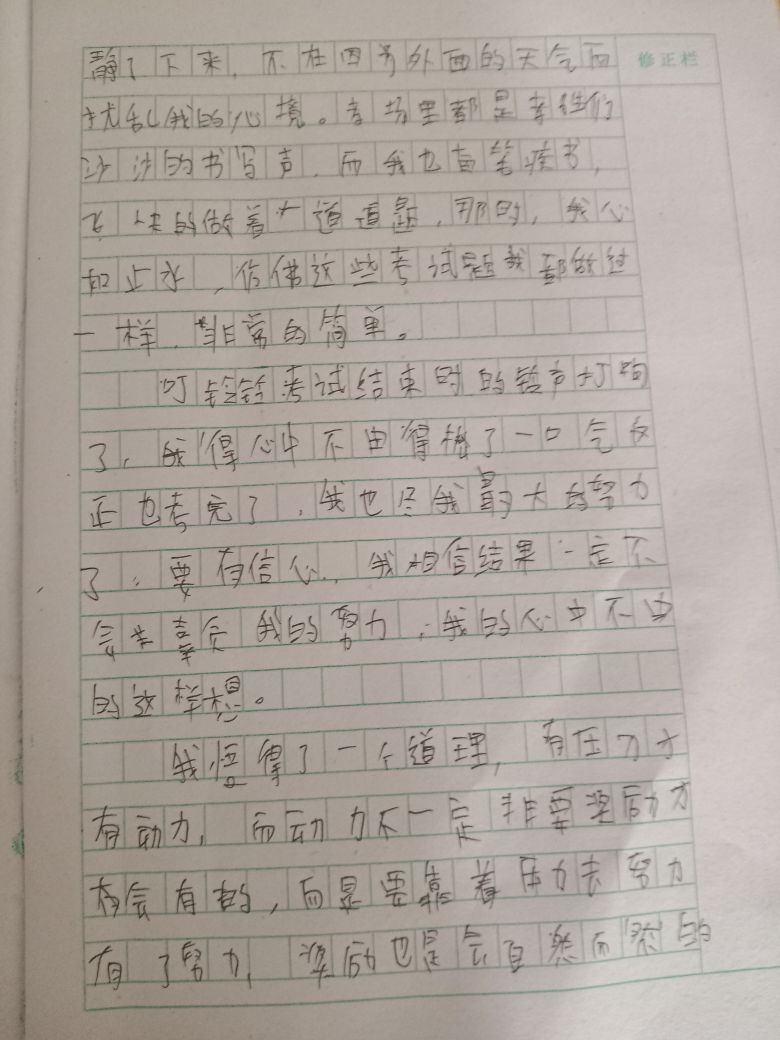 静了下来，不在因为外面的天气而 修正栏
扰乱我的心境。考场里都是考生们
沙沙的书写声，而我也奋笔疾书，
飞快的做着一道道题，那时，我心
如止水，仿佛这些考试题我都做过
一样，非常的简单。
叮铃铃考试结束时的铃声打响
了，我得心中不由得松了一口气反
正也考完了，我也尽我最大的努力
了，要有信心，我相信结果一定不
会辜负我的努力，我的心中不由
的这样想。
我悟得了一个道理，有压力才
有动力，而动力不一定非要奖励才
会有的，而是要靠着压力去努力
有了努力，奖励也是会自然而然的